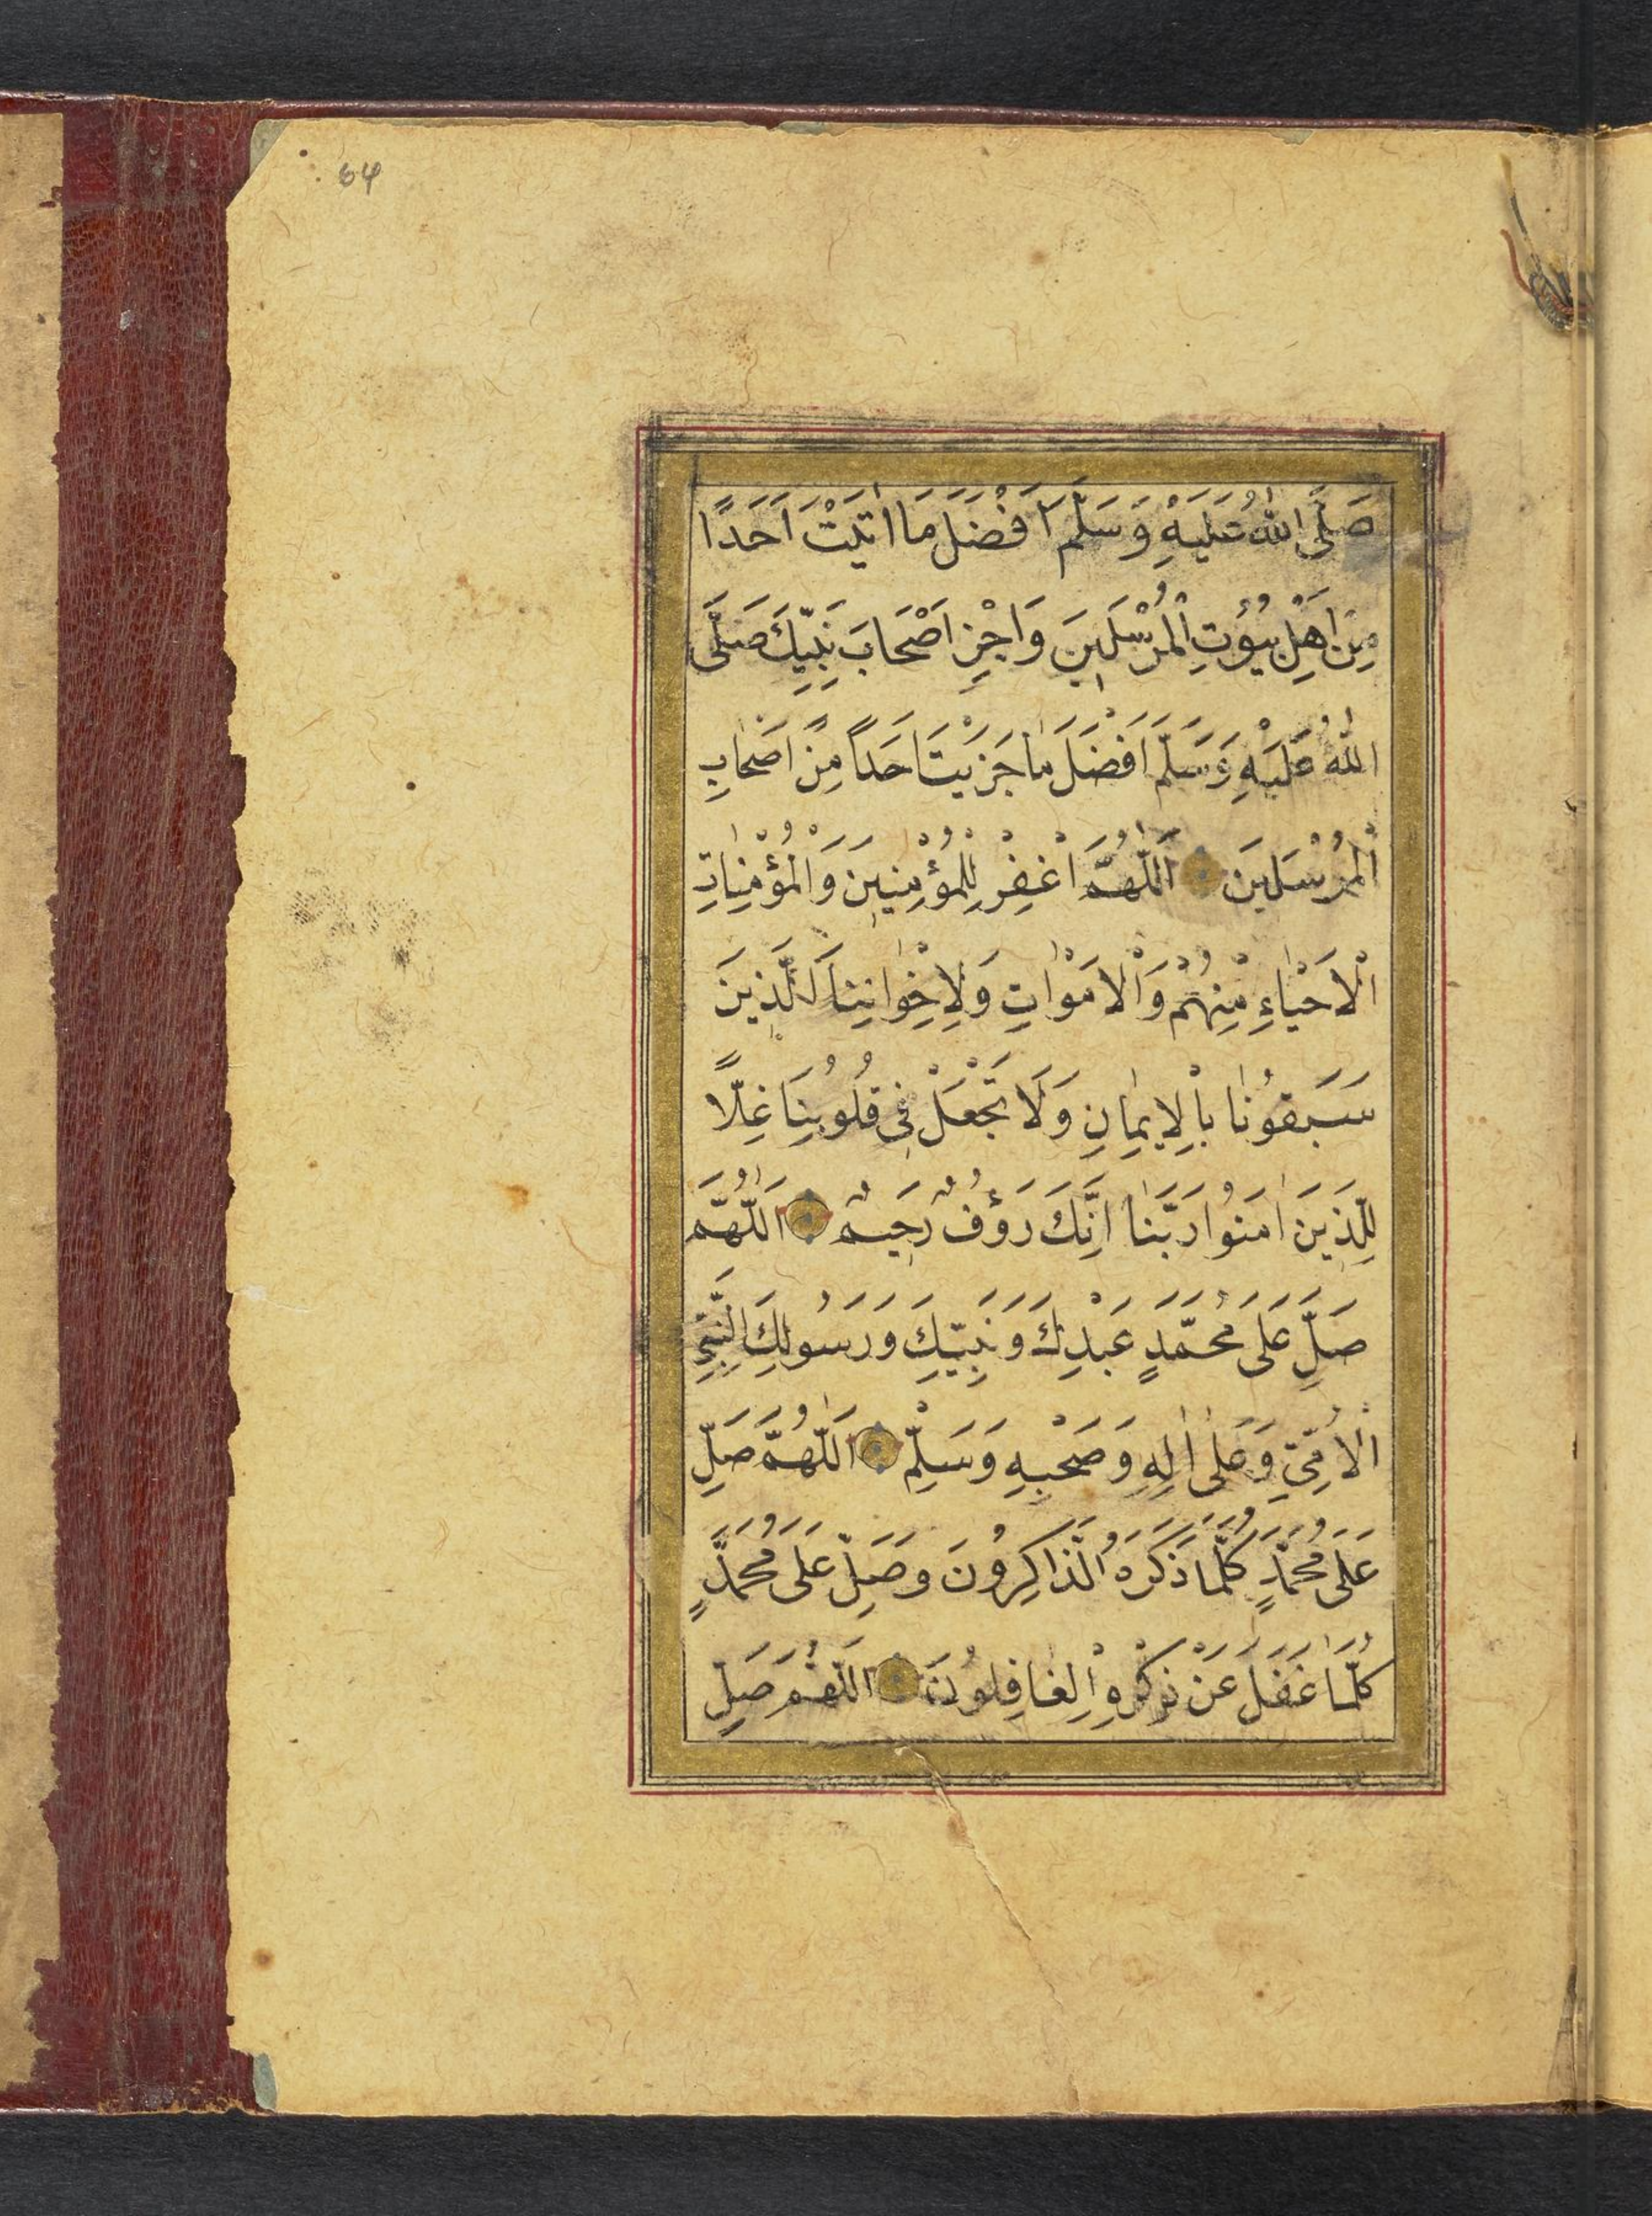 64
صَلَّى اللهُ عَلَيْهِ وَسَلَّمَ اَفْضَلَ مَا اٰتَيْتَ اَحَدًا
مِنْ اَهْلِ بُيُوتِ الْمُرْسَلِينَ وَاَجْزِ اَصْحَابَ نَبِيِّكَ صَلَّى
اللهُ عَلَيْهِ وَسَلَّمَ اَفْضَلَ مَا جَزَيْتَ اَحَدًا مِنْ اَصْحَابِ
الْمُرْسَلِينَ اَللّٰهُمَّ اغْفِرْ لِلْمُؤْمِنِينَ وَالْمُؤْمِنَاتِ
الْاَحْيَاءِ مِنْهُمْ وَالْاَمْوَاتِ وَلِاِخْوَانِنَا الَّذِينَ
سَبَقُونَا بِالْاِيمَانِ وَلَا تَجْعَلْ فِي قُلُوبِنَا غِلًّا
لِلَّذِينَ اٰمَنُوا رَبَّنَا اِنَّكَ رَؤُفٌ رَحِيمٌ اَللّٰهُمَّ
صَلِّ عَلَى مُحَمَّدٍ عَبْدِكَ وَنَبِيِّكَ وَرَسُولِكَ النَّبِيِّ
الْاُمِّيِّ وَعَلٰى اٰلِهِ وَصَحْبِهِ وَسَلِّمْ اَللّٰهُمَّ صَلِّ
عَلَى مُحَمَّدٍ كُلَّمَا ذَكَرَهُ الذَّاكِرُونَ وَصَلِّ عَلَى مُحَمَّدٍ
كُلَّمَا غَفَلَ عَنْ ذِكْرِهِ الْغَافِلُونَ اَللّٰهُمَّ صَلِّ